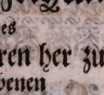 es
ren her zu
benen